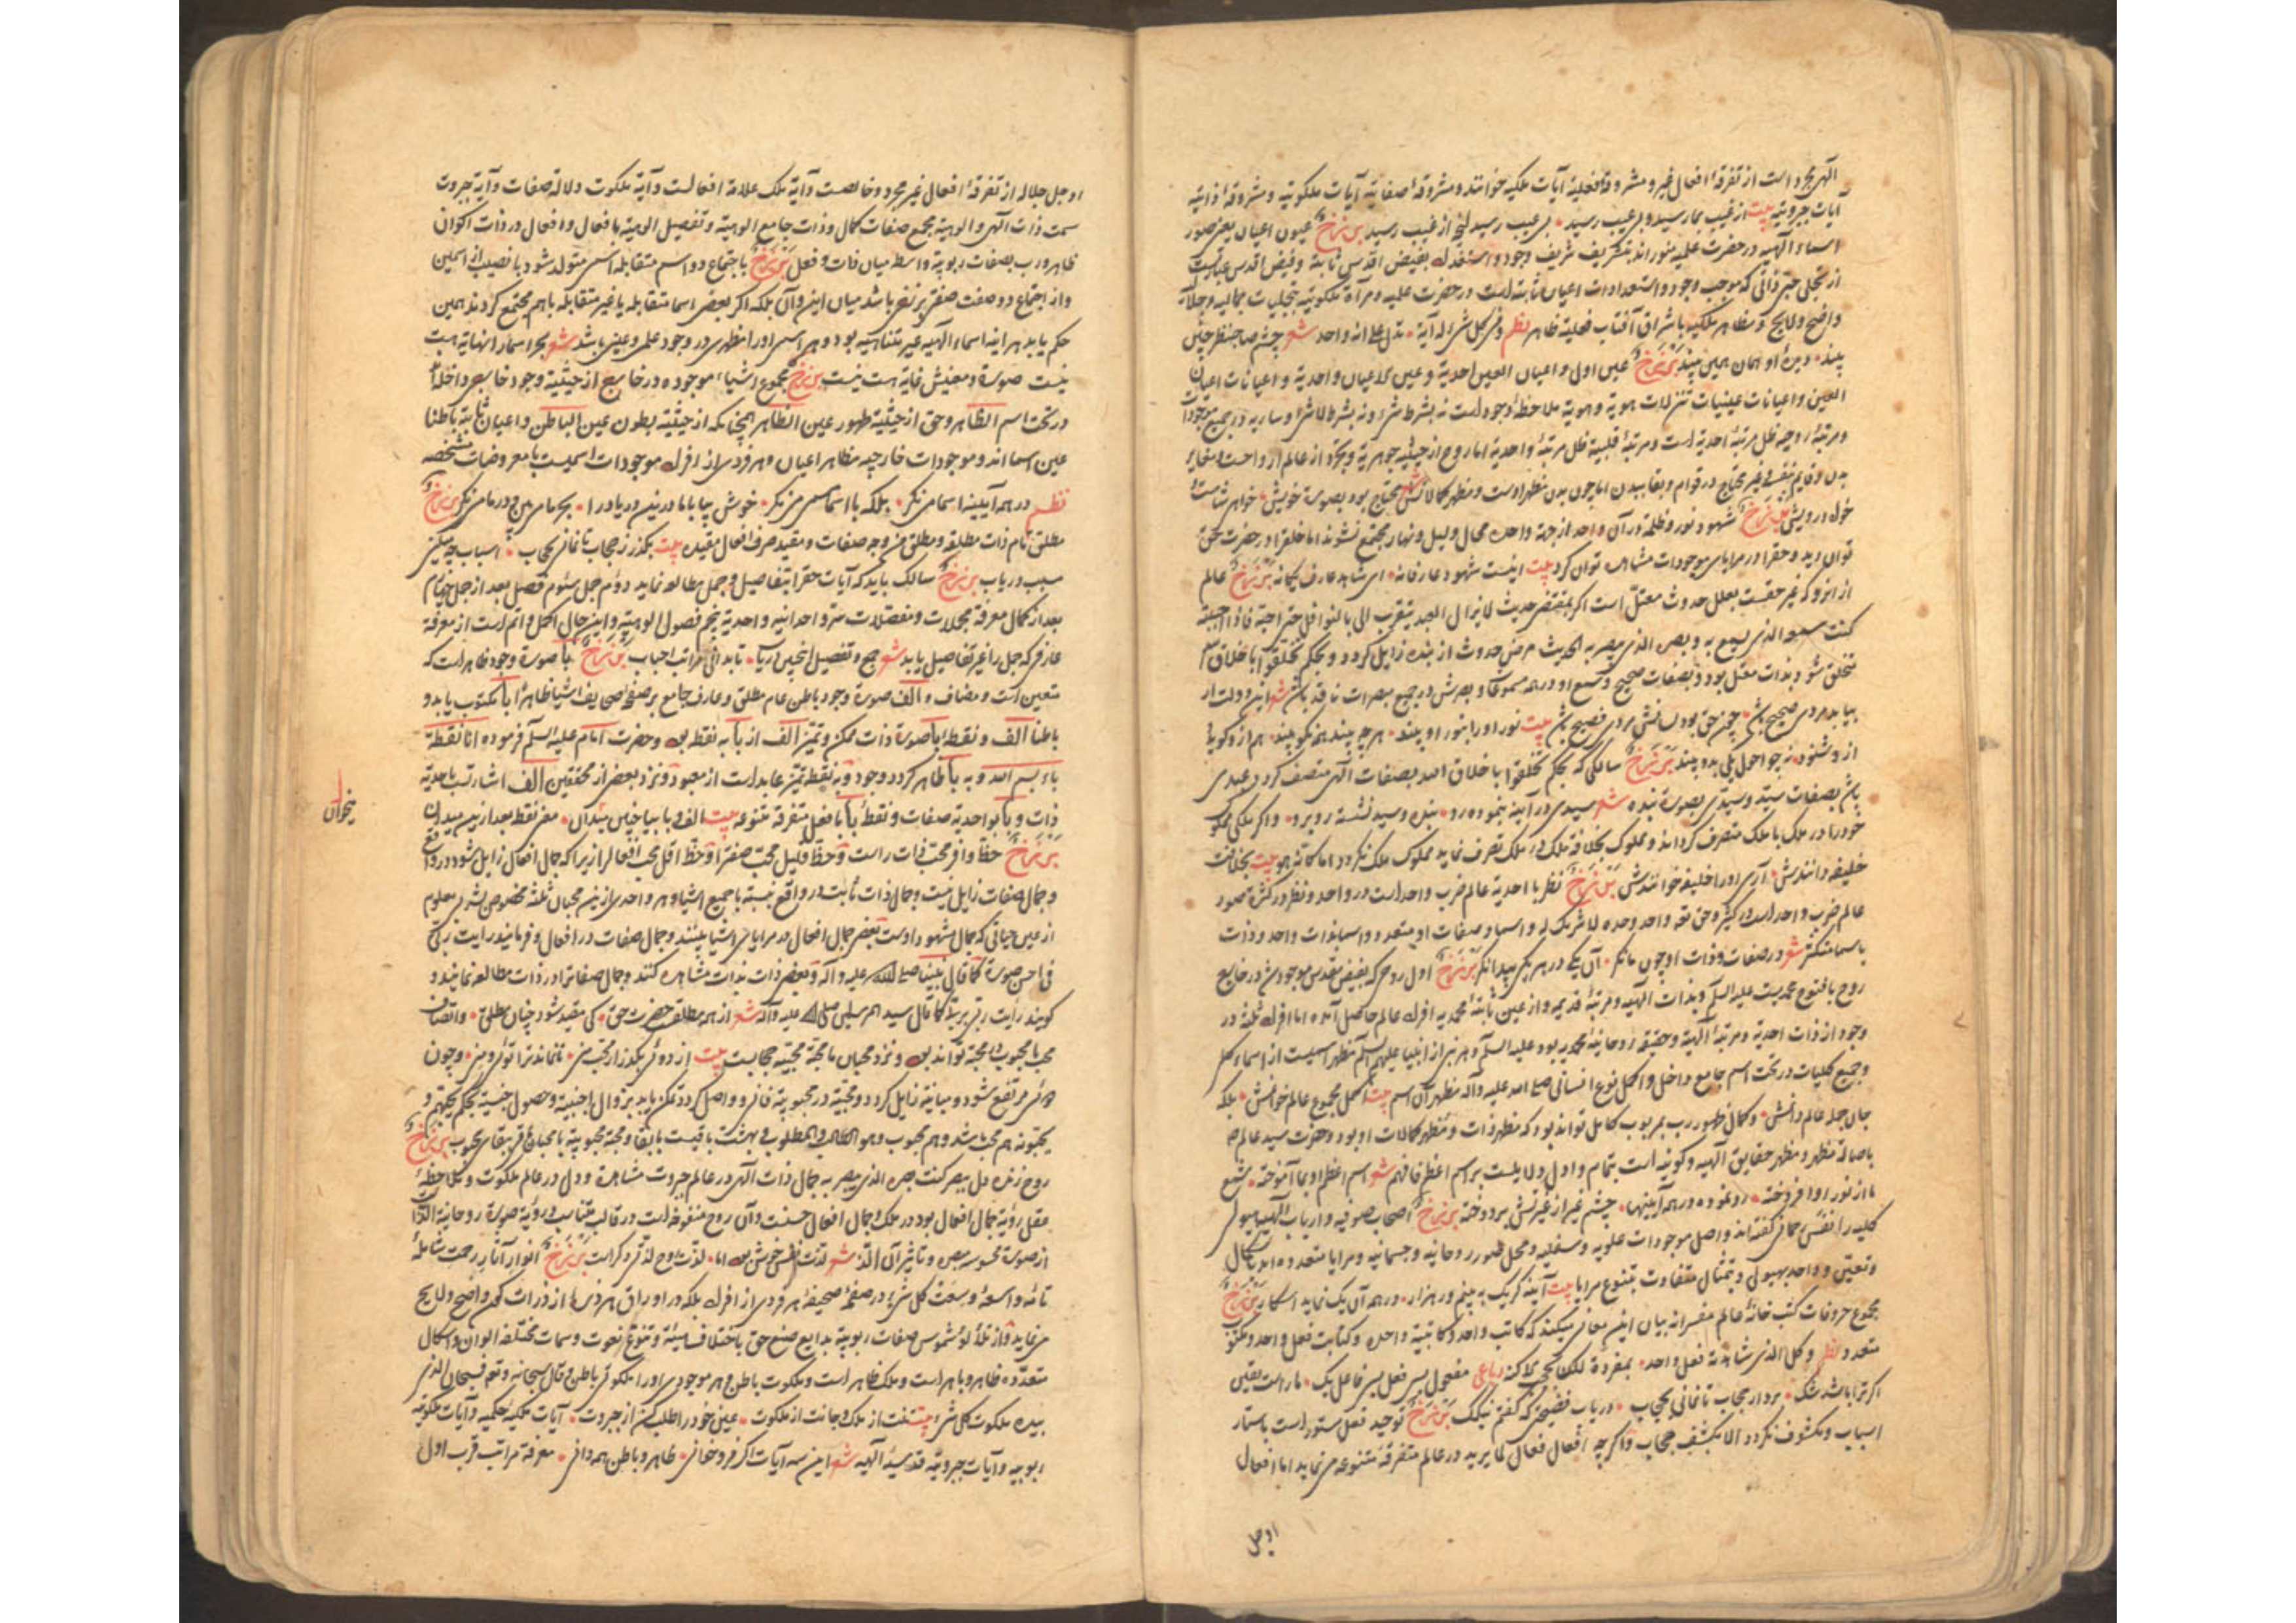 الهی مجرد است از تفرقهٔ افعال غیر و مشروقهٔ فعلیه آیات ملکیه خوانند و مشروقهٔ صفائیه آیات ملکوتیه و مشروقهٔ ذاتیه
آیات جبروتیه بیت از غیب بما رسید و بی عیب رسید • بی عیب رسید از غیب رسید برزخ عیون اعیان یعنی صور
اسماء الهیه در حضرت علمیه منور اند بتشریف شریف وجود و استعداد بفیض اقدس ثابته و فیض اقدس عبارتست
از تجلی حبی ذاتی که موجب وجود و استعدادات اعیان ثابته است در حضرت علمیه و مرآة ملکوتیه بتجلیات جمالیه و جلالیه
واضح و لایح و مظاهر ملکیه باشراق آفتاب فعلیه ظاهر نظم وفی کل شیء له آیة • تدل علی انه واحد شعر چشم صاحبنظر چنین
بیند • دیدهٔ او همان همین بیند برزخ عین اول و اعیان العین احدیة و عین الاعیان واحدیة و اعیانات اعیان
العین و اعیانات عینیات تنزلات هویة و هویة ملاحظهٔ وجود است نه بشرط شیء و نه بشرط لا شیء و ساریه در جمیع موجودات
و مرتبهٔ روحیه ظل مرتبهٔ احدیة است و مرتبهٔ قلبیه ظل مرتبهٔ واحدیة اما روح از حیثیة جوهریة و تجرد از عالم ارواحست و مغایر
بدن و قایم بنفس و غیر محتاج در قوام و بقا ببدن اما چون بدن مظهر اوست و مظهر کمالاتش محتاج بود بصورة خویش • خواهر شاست
خول درویش برزخ شهود نور و ظلمة در آن واحد از جهة واحده محال و لیل و نهار مجتمع نشوند اما خلقرا در حضرت حق
توان دید و حقرا در مرایای موجودات مشاهده توان کرد بیت اینست شهود عارفانه • ای شاهد عارف یگانه برزخ عالم
از انرو که غیر حقست بعلل حدوث معتل است اگر بمقتضی حدیث لا یزال العبد یتقرب الی بالنوافل حتی احبه فاذا احببته
کنت سمعه الذی یسمع به و بصره الذی یبصر به الحدیث مرض حدوث از بنده زایل گردد و بحکم تخلقوا باخلاق الله
متخلق شود بذات معتل بود و بصفات صحیح و سمع او در همه مسموعات و بصرش در جمیع مبصرات نافذ باشد شعر این دولت ار
بیابد مردی صحیح باشد • چون حق بود لسانش مردی فصیح باشد بیت نور او را بنور او بیند • هر چه بیند همه نکو بیند • هم ازو گوید و
ازو شنود • نه چو احول یکی بدو بیند برزخ سالکی که بحکم تخلقوا باخلاق الله بصفات الهی متصف گردد عبدی
باشد بصفات سید و سیدی بصورة بنده شعر سیدی در آینه بنموده رو • بنده و سید نشسته روبرو • و اگر ملکی مملوک
خود را در ملک با ملک متصرف گرداند و مملوک بخلافة ملک در ملک تصرف نماید مملوک ملک نگردد اما کانه هو بیت بخلافت
خلیفه دانندش • آری او را خلیفه خوانندش برزخ نظر با احدیة عالم ضرب واحد است در واحد و نظر در کثرة صور
عالم ضرب واحد است در کثیر و حق تعه واحد وحده لا شریک له و اسما و صفات او متعدد و اسما بذات واحد و ذات
باسما متکثر شعر در صفات و ذات او چون ما نگر • آن یکی در هر یکی پیدا نگر برزخ اول روحی که بفیض مقدس موجود شد در خارج
روح با فتوح محمدیست علیه السلم و بذات الهیه و مرتبهٔ قدیمه و از عین ثابتهٔ محمدیه افراد عالم حاصل آمده اما افراد ثلثه در
وجود از ذات احدیة و مرتبهٔ الهیة و حقیقة روحانیهٔ محمدیه بود علیه السلم و هر نبی از انبیا علیهم السلم مظهر اسمیست از اسماء کلی
و جمیع کلیات در تحت اسم جامع داخل و اکمل نوع انسانی صلی الله علیه وآله مظهر آن اسم بیت اکمل مجموع عالم خوانمش • بلکه
جان جمله عالم دانمش • و کمال ظهور رب بمربوب کامل تواند بود که مظهر ذات و مظهر کمالات او بود و حضرت سید عالم صه
باصالة مظهر و مظهر حقایق الهیه و کونیه است بتمام و اول دلایلست بر اسم اعظم فافهم شعر اسم اعظم او بما آموخته • شمع
ما از نور او افروخته • رو نموده در همه آیینها • چشم غیر از غیرتش بردوخته برزخ اصحاب صوفیه و ارباب الهیه هیولی
کلیه را نفس رحمانی گفته اند و اصل موجودات علویه و سفلیه و محل صور روحانیه و جسمانیه و مرایا متعدده اند باشکال
و تعین و واحد بهیولی و بتمثال متفاوت بتنوع مرایا بیت آینه گر یک به بینم ور هزار • در همه آن یک نماید آشکار برزخ
مجموع حروفات کتب خانهٔ عالم مفسرانه بیان این معانی میکنند که کاتب واحد و کاتبیة واحده و کتابت فعل واحد و مکتوب
متعدد نظم و کل الذی شاهدته فعل واحد • بمفرده لکن بحجب الاکنه رباعی مفعول بسی فعل بسی فاعل یک • ما راست یقین
اگر ترا باشد شک • بردار حجاب تا نمانی بحجاب • دریاب فصیحی که گفتم نیکک برزخ توحید فعل مستور است باستار
اسباب و مکشوف نگردد الا بکشف حجاب و اگرچه افعال فعال لما یرید در عالم متفرقه متنوعه می نماید اما افعال
او جل
او جل جلاله از تفرقهٔ افعال غیر مجرد و خالصست و آیة ملک علامة افعالست و آیة ملکوت دلالة صفات و آیة جبروت
سمت ذات الهی و الوهیة مجمع صفات کمال و ذات جامع الوهیة و تفصیل الوهیة بافعال و افعال در ذات اکوان
ظاهر و رب بصفات ربوبیة واسطه میان ذات و فعل برزخ باجتماع دو اسم متقابله اسمی متولد شود با نصیب از اسمین
و از اجتماع دو صفت صفتی برزخی باشد میان این و آن بلکه اگر بعضی اسما متقابله یا غیر متقابله باهم مجتمع گردند همین
حکم یابد هر اینه اسماء الهیه غیر متناهیه بود و هر اسمی را مظهری در وجود علمی و عینی باشد شعر بحر اسما را نهایة هست
نیست صورة و معنیش غایة هست نیست برزخ مجموع اشیاء موجوده در خارج از حیثیة وجود خارجی داخلند
در تحت اسم الظاهر و حق از حیثیة ظهور عین الظاهر همچنانکه از حیثیة بطون عین الباطن و اعیان ثابته باطنا
عین اسما اند و موجودات خارجیه مظاهر اعیان و هر فردی از افراد موجودات اسمیست با معروضات مشخصه
نظم در همه آیینه اسما می نگر • بلکه با اسما مسمی می نگر • خوش بیا با ما درین دریا درا • بحر ما می بین و در ما می نگر برزخ
مطلق تام ذات مطلقه و مطلق من وجه صفات و مقید صرف افعال مقیده بیت بگذر ز حجاب تا نمانی بحجاب • اسباب چه میکنی
سبب دریاب برزخ سالک باید که آیات حقرا بتفاصیل و جمل مطالعه نماید دوم جمل سئوم فصل بعد از جمل چهارم
بعد از کمال معرفة مجملات و مفصلات مرتبه واحدانیه و احدیة پنجم فصول الوهیة و این حال اکمل و اتم است از معرفة
عارفی که جمل را غیر تفاصیل یابد شعر جمع و تفصیل اینچنین دریاب • تا بدانی مراتب احباب برزخ با صورة وجود ظاهر است که
متعین است و مضاف و الف صورة وجود باطن عام مطلق و عارف جامع بر صفحهٔ صحایف اشیا ظاهرا با مکتوب یابد و
باطنا الف و نقطهٔ با صورة ذات ممکن و تمیز الف از با به نقطه بود و حضرت امام علیه السلم فرموده انا نقطة
باء بسم الله و به با ظاهر گردد وجود و به نقطه تمیز عابد است از معبود و نزد بعضی از محققین الف اشارتست باحدیة
ذات و با بواحدیة صفات و نقطهٔ با بافعال متفرقهٔ متنوعه بیت الف و با بیا چنین میدان • معنی نقطه بعد ازین میدان
میخوان
برزخ حظا وافر محب ذات راست و حظ قلیل محب صفترا و حظ اقل محب افعالرا زیرا که جمال افعال زایل شود در واقع
و جمال صفات زایل نیست و جمال ذات ثابت در واقع نسبة با جمیع اشیا و هر واحدی ازین محبان ثلثه مخصوص بشربی معلوم
از عین حیاتی که جمال مشهود اوست بعضی جمال افعال در مرایای اشیا بینند و جمال صفات در افعال و فرمایند رایت ربی
فی احسن صورة کما قال نبینا صلی الله علیه و آله و بعضی ذات بذات مشاهده کنند و جمال صفاترا در ذات مطالعه نمایند و
گویند رایت ربی بربی کما قال سید المرسلین صلی الله علیه وآله شعر از همه مطلقست حضرت حق • کی مقید شود چنان مطلق • و اتصال
محب با محبوب در محبة تواند بود و نزد محبان ما محبة محبیه حجابست بیت از دوئی بگذر ار محب منی • تا نماند ترا توئی و منی • و چون
دوئی مرتفع شود و مباینة زایل گردد و محبیة در محبوبیة فانی و واصل گردد تمکن یابد بزوال اجنبیة و حصول جنسیة بحکم یحبهم و
یحبونه هم محب باشد و هم محبوب و هو الطالب و المطلوب و بهشت باقیست بابقاء محبة محبوبیة با محبان فی بقای محبوب برزخ
روح زنده دل ببصر کنت بصره الذی یبصر به جمال ذات الهی در عالم جبروت مشاهده و دل در عالم ملکوت و ملاحظهٔ
عقل رؤیة جمال افعال بود در ملک و جمال افعال حسنست و آن روح منفوخه است در قالب متناسب و رؤیة صورة روحانیه الذ
از صورة محسوسه مبصره و تأثیر آن الذ شعر لذت نفس خوش بود اما • لذت روح لذتی دگرست برزخ انوار آثار رحمت شاملهٔ
تامه واسعهٔ وسعت کل شیء در صفحهٔ صحیفهٔ هر فردی از افراد بلکه در اوراق هر ذرهٔ از ذرات کون واضح و لایح
می نماید و از تلألؤ شموس صفات ربوبیة بدایع صنع حق باختلاف هیئة و تنوع نعوت و سمات مختلفه الوان و اشکال
متعدده ظاهر و باهر است و ملک ظاهر است و ملکوت باطن و هر موجودی را ملکوتی باطن و قال سبحانه و تعه فسبحان الذی
بیده ملکوت کل شیء بیت تنت از ملک و جانت از ملکوت • عین خود را طلب کن از جبروت • آیات ملکیه حکمیه و آیات ملکوتیه
ربوبیه و آیات جبروتیه قدسیهٔ الهیه شعر این سه آیات اگر فروخوانی • ظاهر و باطن همه دانی • معرفة مراتب قرب اول